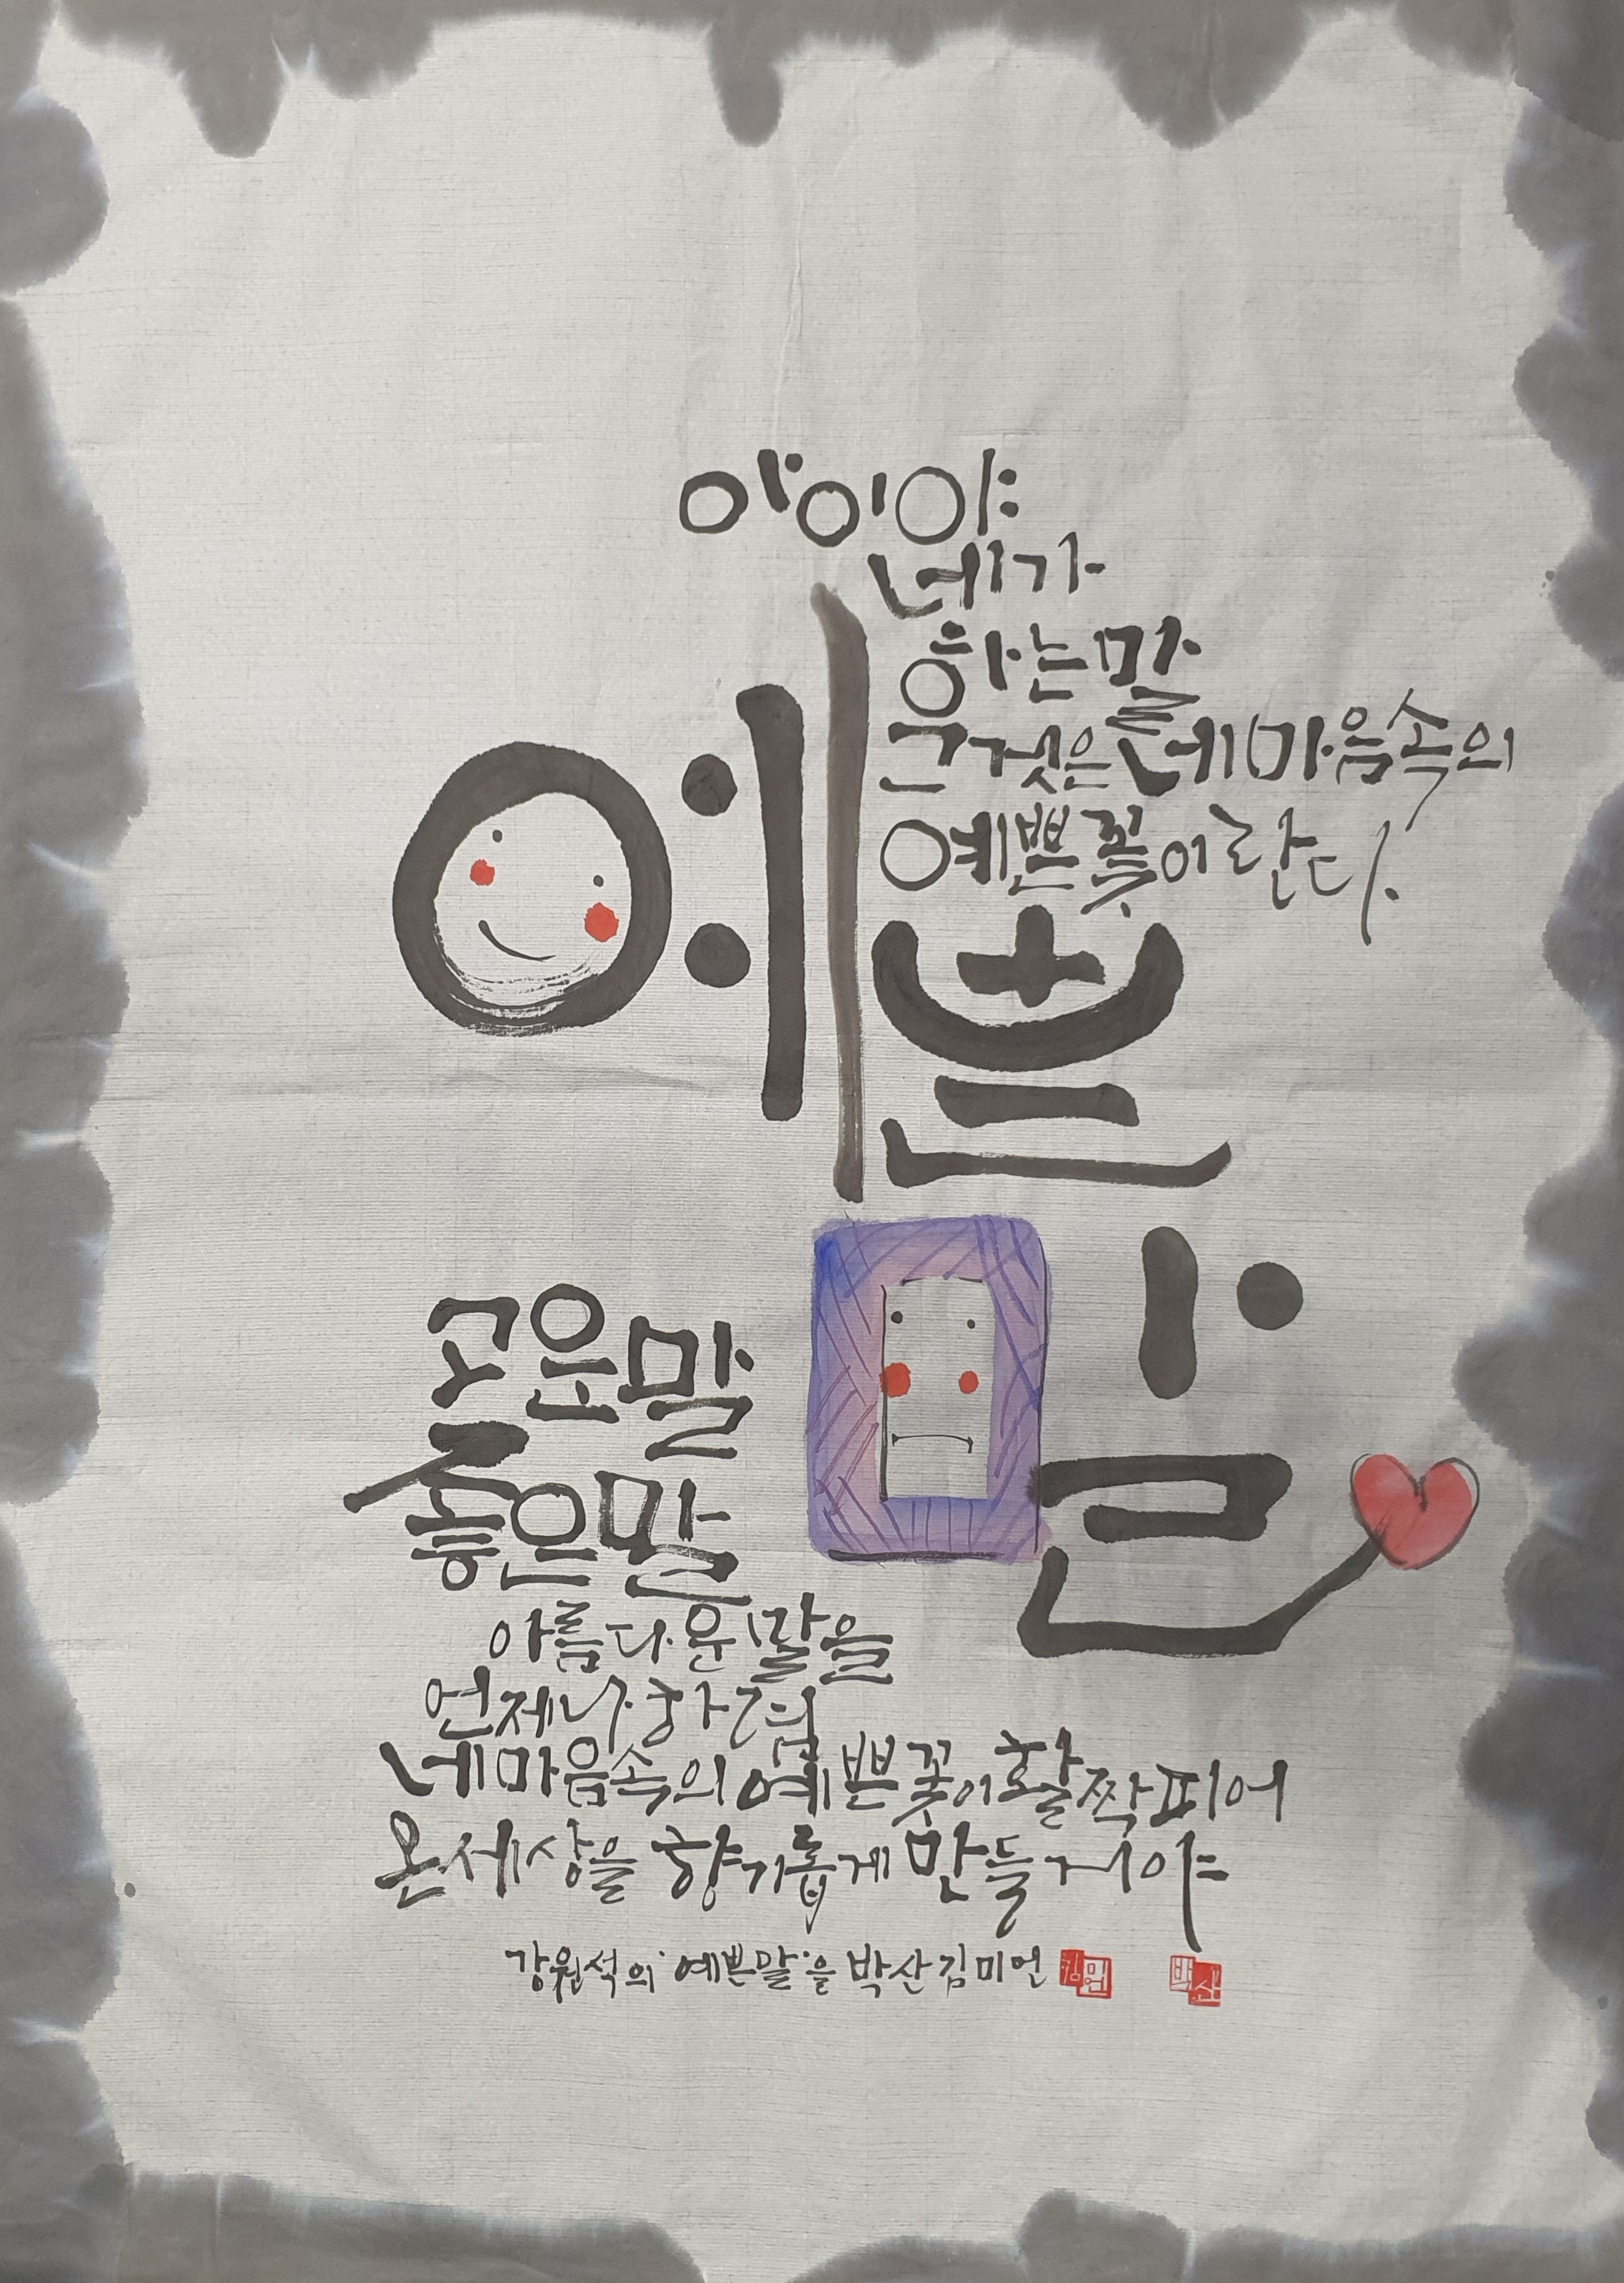 아이야
네가
하는 말
그것은 네 마음속의
예쁜 꽃이란다.
예쁜
말
고운 말
좋은 말
아름다운 말을
언제나 하렴
네 마음속의 예쁜 꽃이 활짝 피어
온 세상을 향기롭게 만들 거야
강원석의 '예쁜 말'을 박산 김미언
박산